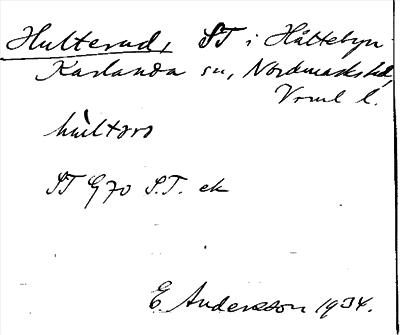 Hulterud, ST i Håltebyn
Karlanda sn, Nordmarks hd,
Vrml l.
hùltərə
ST G70 S.T. ek
E. Andersson 1934.